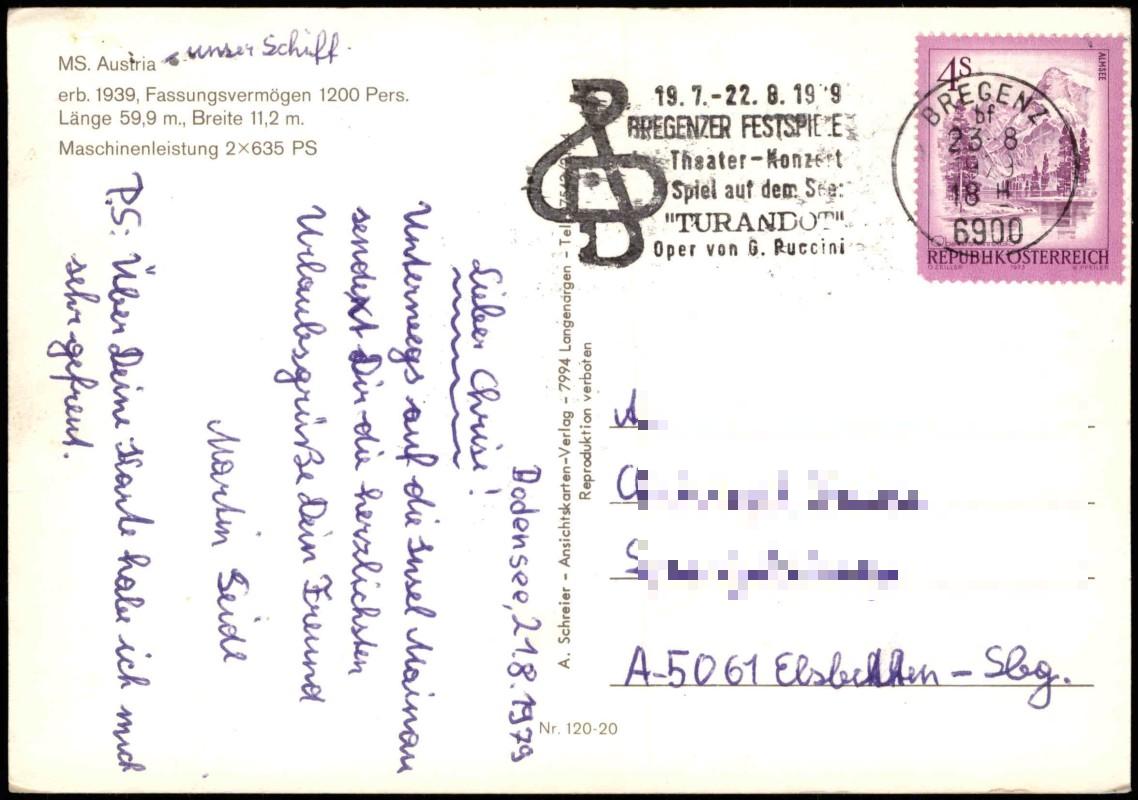 MS. Austria unser Schiff.
erb. 1939, Fassungsvermögen 1200 Pers.
Länge 59,9 m., Breite 11,2 m.
Maschinenleistung 2×635 PS
Bodensee, 21.8.1979
Lieber Chrisi!
Unterwegs auf die Insel Mainau
sendext Dir die herzlichsten
Urlaubsgrüße Dein Freund
Martin Seidl
P.S: Über Deine Karte habe ich mich
sehr gefreut.
A. Schreier - Ansichtskarten-Verlag - 7994 Langenargen - Tel.
Reproduktion verboten
Nr. 120-20
19.7.-22.8.19 9
BREGENZER FESTSPIELE
Theater-Konzert
Spiel auf dem See:
"TURANDOT"
Oper von G. Puccini
4S
ALMSEE
REPUBLIK ÖSTERREICH
O. ZEILLER 1973 W. PFEILER
BREGENZ
bf
23 8
18 H
6900
A-5061 Elsbethen - Sbg.